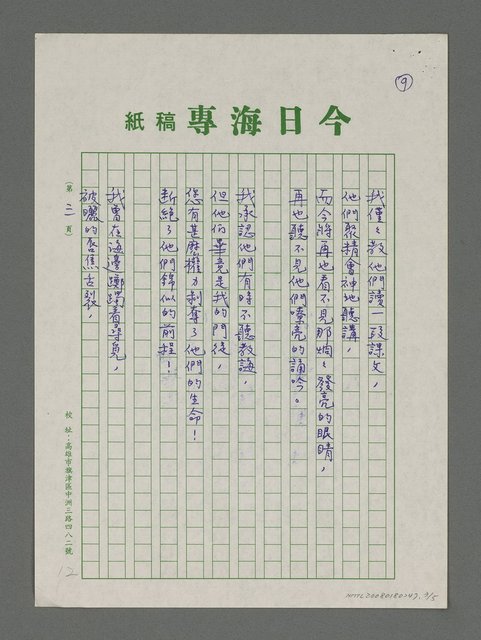 ⑨
今日海專稿紙
我僅々教他們讀一段課文，
他們聚精會神地聽講，
而今將再也看不見那烱々發亮的眼睛，
再也聽不見他們嘹亮的誦吟。
我承認他們有時不聽教誨，
但他们畢竟是我的門徒，
您有甚麼權力剝奪了他們的生命！
斷絕了他們錦似的前程！
我曾在海邊躑躅着尋覓，
被曬的唇焦舌裂，
(第二頁)
校址：高雄市旗津區中洲三路四八二號
12
NMTL20080180247. 9/5